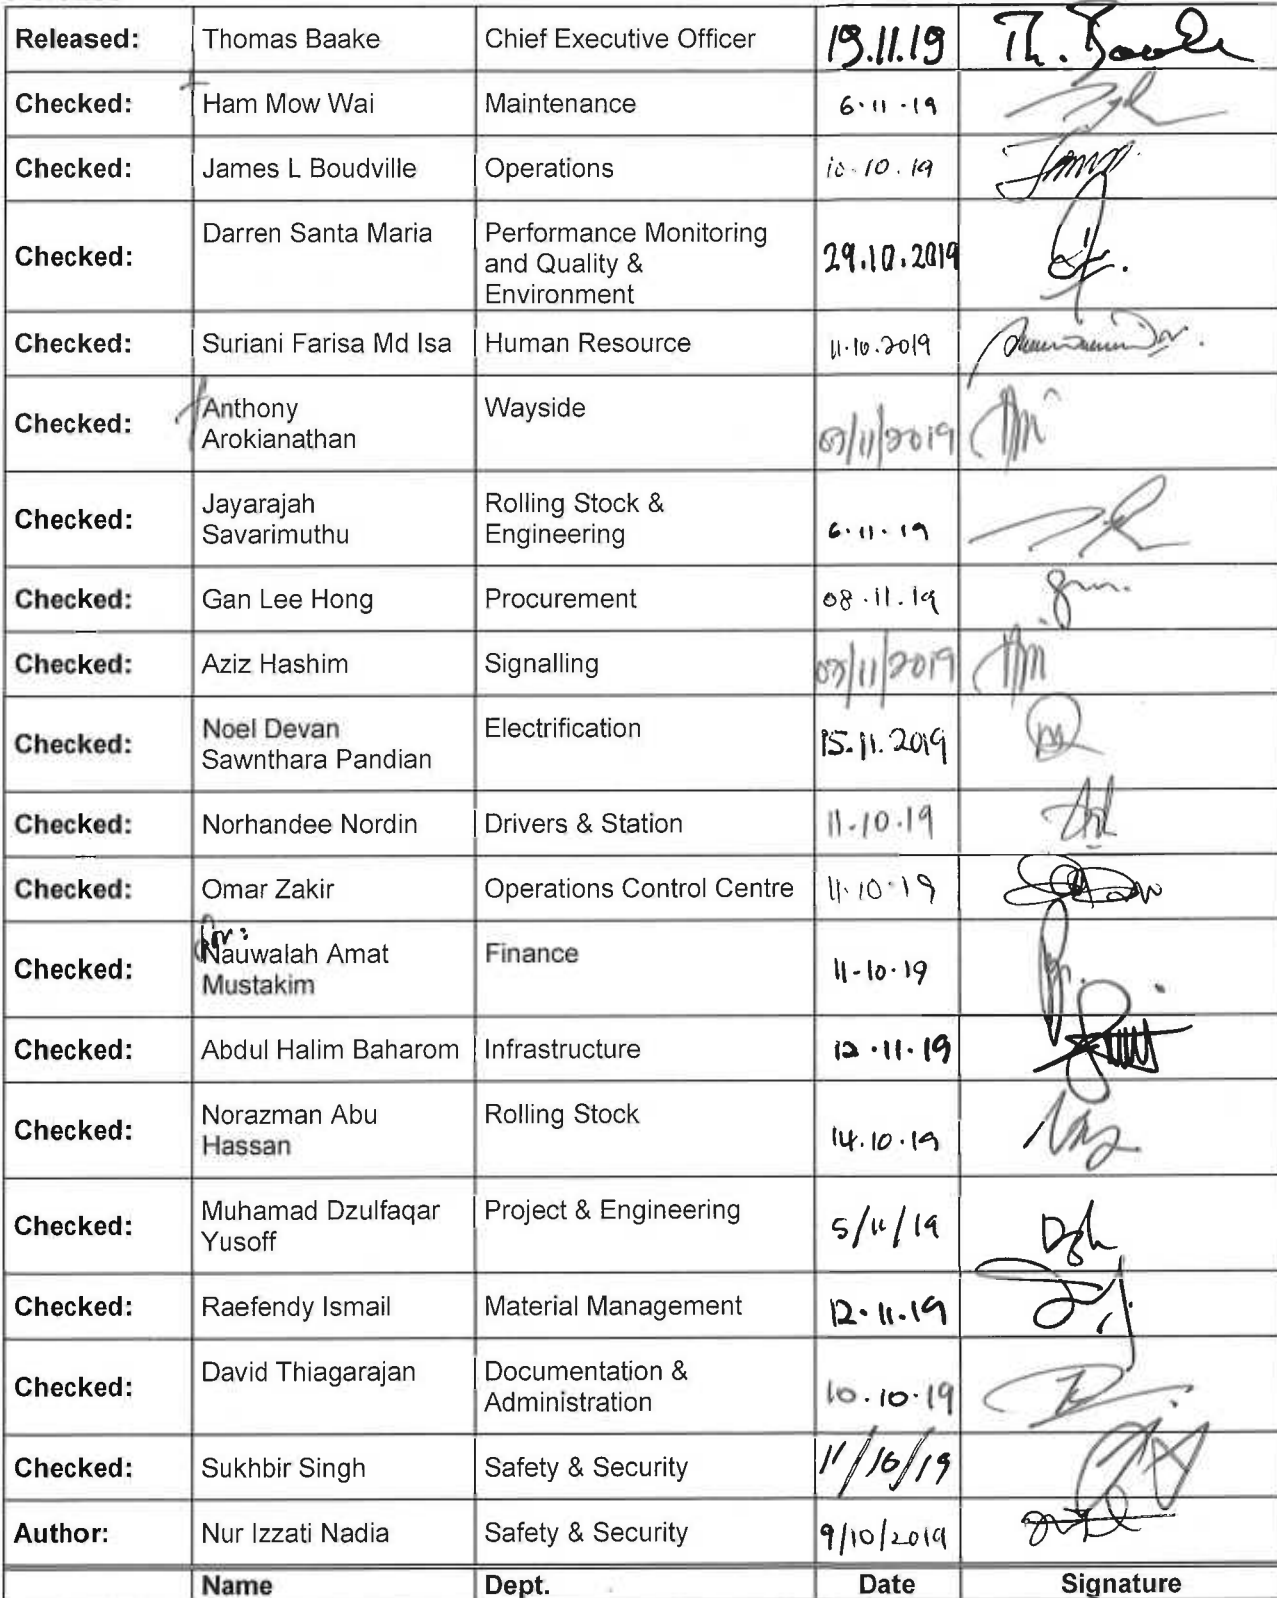 Released: Thomas Baake Chief Executive Officer 19.11.19 Th. Baake
Checked: Ham Mow Wai Maintenance 6.11.19
Checked: James L Boudville Operations 10.10.19
Checked: Darren Santa Maria Performance Monitoring
and Quality &
Environment 29.10.2019
Checked: Suriani Farisa Md Isa Human Resource 11.10.2019
Checked: Anthony
Arokianathan Wayside 07/11/2019
Checked: Jayarajah
Savarimuthu Rolling Stock &
Engineering 6.11.19
Checked: Gan Lee Hong Procurement 08.11.19
Checked: Aziz Hashim Signalling 07/11/2019
Checked: Noel Devan
Sawnthara Pandian Electrification 15.11.2019
Checked: Norhandee Nordin Drivers & Station 11-10.19
Checked: Omar Zakir Operations Control Centre 11.10.19
for:
Checked: Nauwalah Amat
Mustakim Finance 11-10.19
Checked: Abdul Halim Baharom Infrastructure 12.11.19
Checked: Norazman Abu
Hassan Rolling Stock 14.10.19
Checked: Muhamad Dzulfaqar
Yusoff Project & Engineering 5/11/19
Checked: Raefendy Ismail Material Management 12.11.19
Checked: David Thiagarajan Documentation &
Administration 10.10.19
Checked: Sukhbir Singh Safety & Security 11/10/19
Author: Nur Izzati Nadia Safety & Security 9/10/2019
Name Dept. Date Signature